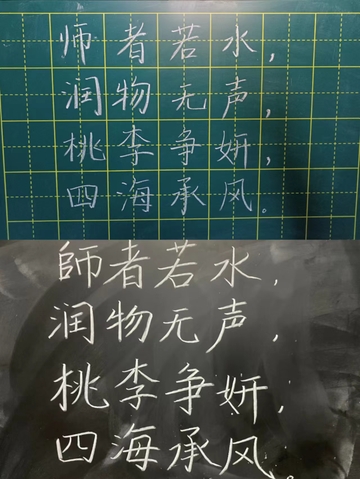 师者若水，
润物无声，
桃李争妍，
四海承风。
師者若水，
润物无声，
桃李争妍，
四海承风。